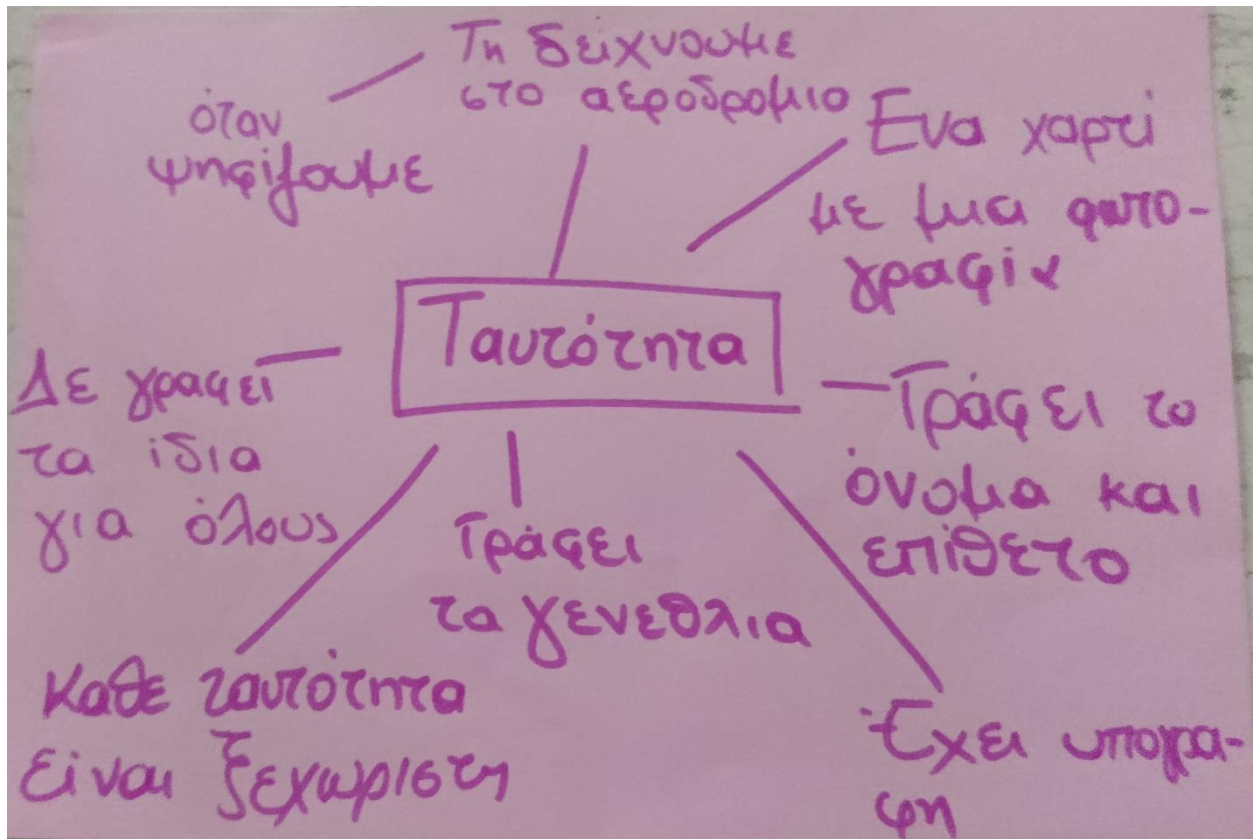 Τη δείχνουμε
στο αεροδρομιο
όταν
ψηφίζουμε
Ενα χαρτί
με μια φωτο-
γραφία
Ταυτότητα
Δε γραφει
τα ίδια
για όλους
Γράφει το
όνομα και
επίθετο
Γράφει
τα γενεθλια
Καθε ταυτότητα
είναι ξεχωριστη
Έχει υπογρα-
φη